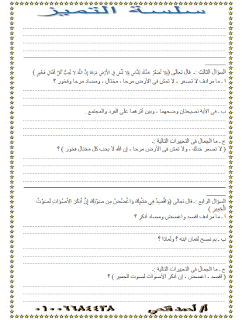 سلسلة التميز
السؤال الثالث : قال تعالى (ولا تصعر خدك للناس ولا تمش في الأرض مرحا إن الله لا يحب كل مختال فخور )
أ ـ ما مرادف لا تصعر ، لا تمش في الأرض مرحا ، مختال ، ومضاد مرحا وفخور ؟
ب ـ في الآية نصيحتان وضحهما ، وبين أثرهما على الفرد والمجتمع
ج ـ ما الجمال في التعبيرات التالية :
( لا تصعر خدك ، ولا تمش في الأرض مرحا ، إن الله لا يحب كل مختال فخور ) ؟
السؤال الرابع : قال تعالى (واقصد في مشيك واغضض من صوتك إن أنكر الأصوات لصوت الحمير )
أ ـ ما مرادف اقصد واغضض ومضاد أنكر ؟
ب ـ بم نصح لقمان ابنه ؟ ولماذا ؟
ج ـ ما الجمال في التعبيرات التالية :
( اقصد ، اغضض ، إن أنكر الأصوات لصوت الحمير ) ؟
٠١٠٠٦٦٨٤٤٣٨